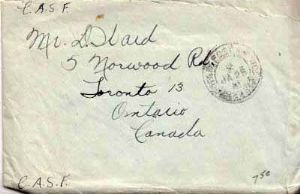 C.A.S.F.
Mr. D. Ward
5 Norwood Rd.
Toronto 13
Ontario
Canada
C.A.S.F.
7.50